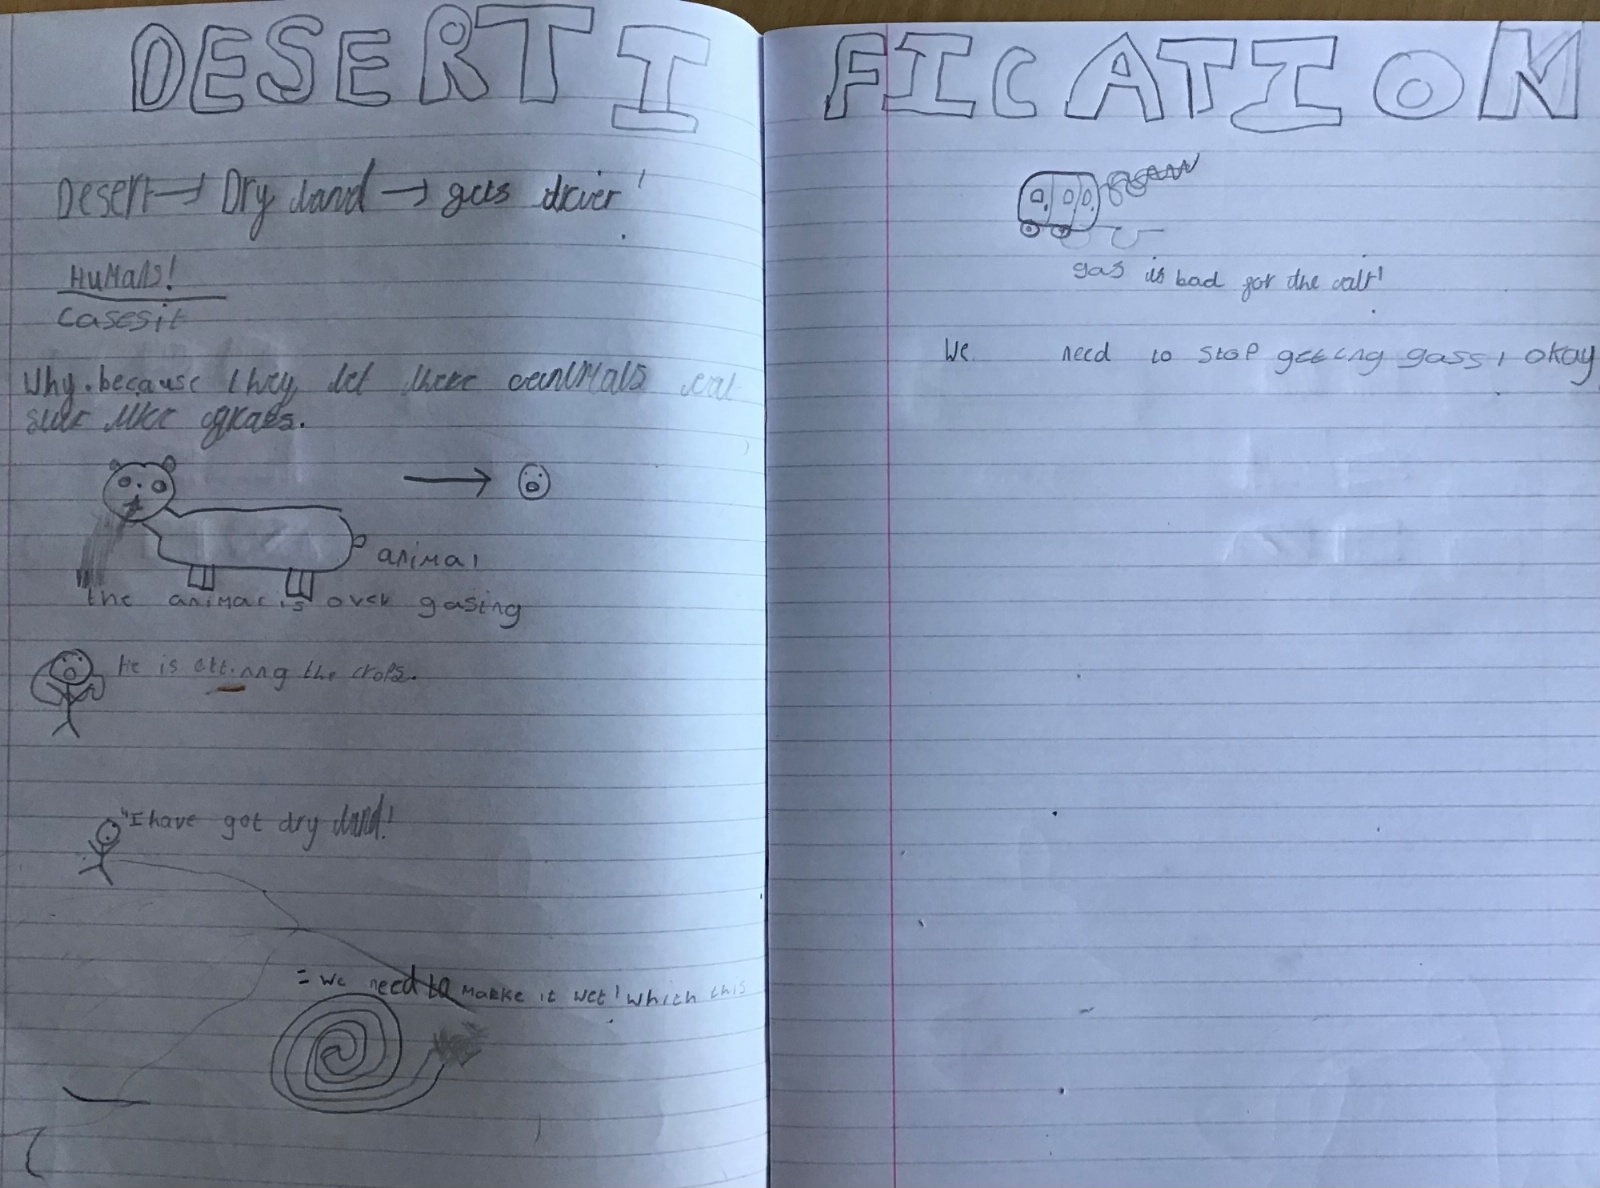 DESERTIFICATION
Desert → Dry land → gets drier!
Humans!
casesit
Why. because they let there animals eat
like grass.
animal
the animal is over gasing
He is the crops.
"I have got dry land!
= we need to makke it wet! which this
gas is bad for the !
We need to stop getting gass, okay